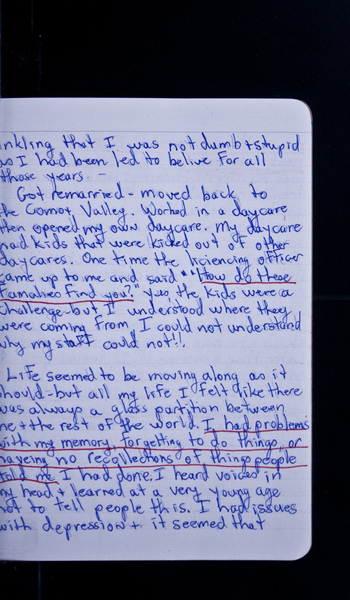 inkling that I was not dumb + stupid
as I had been led to belive for all
those years. -
Got remarried - moved back to
the Comox Valley. Worked in a daycare
then opened my own daycare. My daycare
had kids that were kicked out of other
daycares. One time the liciencing officer
came up to me and said "How do these
Familiies find you?" Yes the kids were a
challenge - but I understood where they
were coming from, I could not understand
why my staff could not!!.
Life seemed to be moving along as it
should - but all my life I felt like there
was always a glass partition between
me + the rest of the world. I had problems
with my memory, forgetting to do things, or
having no recollections of things people
told me I had done. I heard voices in
my head + learned at a very young age
not to tell people this. I had issues
with depression + it seemed that